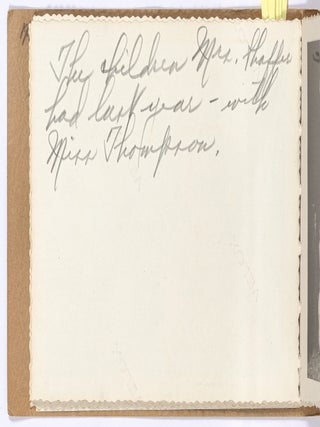 The children Mrs. Shaffer
had last year – with
Miss Thompson.